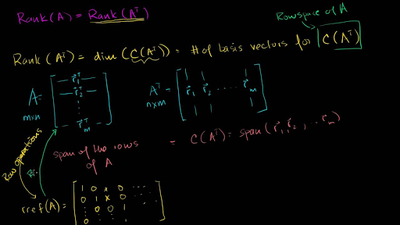 Rank(A) = Rank(Aᵀ)
Rowspace of A
Rank(Aᵀ) = dim(C(Aᵀ)) = # of basis vectors for C(Aᵀ)
A = [ — r⃗₁ᵀ — — r⃗₂ᵀ — ⋮ — r⃗ₘᵀ — ]
m×n
Aᵀ = [ r⃗₁ r⃗₂ .... r⃗ₘ ]
n×m
span of the rows of A = C(Aᵀ) = span(r⃗₁, r⃗₂, ... r⃗ₘ)
Row operations
rref(A) = [ 1 0 x 0 ...
0 1 x 0 ...
: 0 0 1
0 : : : ]